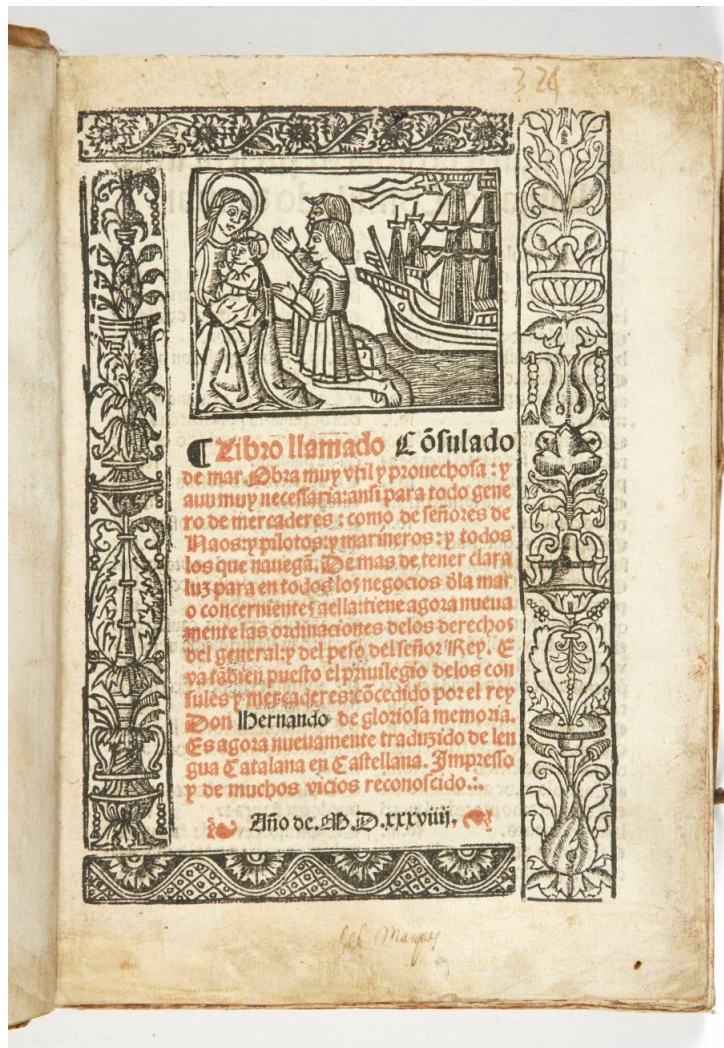 324
¶ Libro llamado Cõsulado
de mar. Obra muy vtil y prouechosa : y
aun muy necessaria: ansi para todo gene
ro de mercaderes : como de señores de
Naos: y pilotos: y marineros : y todos
los que nauegã. De mas de tener clara
luz para en todos los negocios d̃la mar
o concernientes a ella: tiene agora nueua
mente las ordinaciones delos derechos
del general: y del peso del señor Rey. E
va tãbien puesto el priuilegio delos con
sules y mercaderes: cõcedido por el rey
Don Hernando de gloriosa memoria.
Es agora nueuamente traduzido de len
gua Catalana en Castellana. Impresso
y de muchos vicios reconoscido.:.
Año de. M.D.xxxviiij.
del Marques